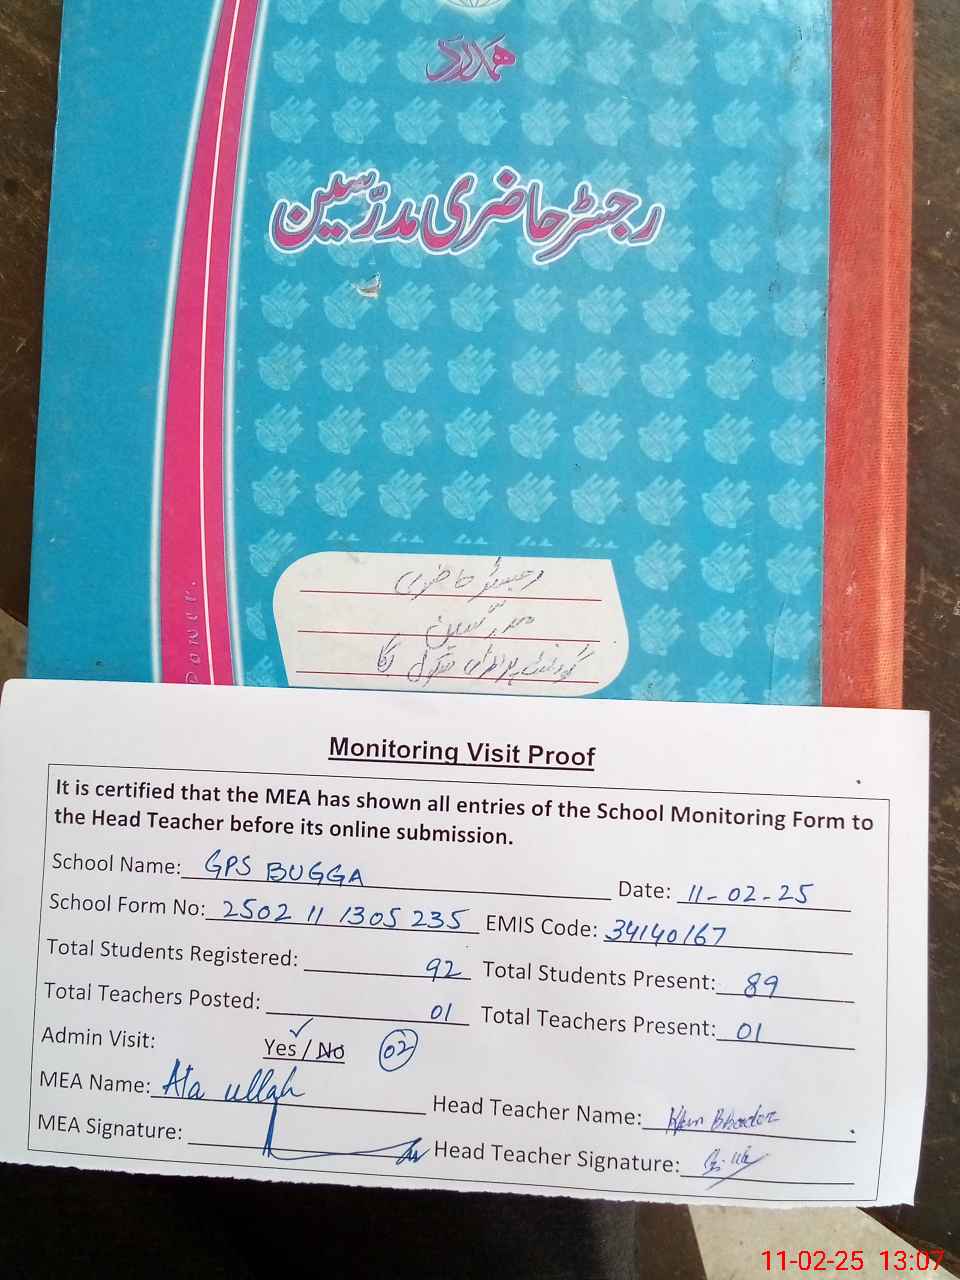 ہمدرد
رجسٹر حاضری مدرّسین
رجسٹر حاضری
مدرّسین
گورنمنٹ پرائمری سکول بگا
Monitoring Visit Proof
It is certified that the MEA has shown all entries of the School Monitoring Form to
the Head Teacher before its online submission.
School Name: GPS BUGGA Date: 11-02-25
School Form No: 2502 11 1305 235 EMIS Code: 34140167
Total Students Registered: 92 Total Students Present: 89
Total Teachers Posted: 01 Total Teachers Present: 01
Admin Visit: Yes / No 02
MEA Name: Ata ullah Head Teacher Name:
MEA Signature: Head Teacher Signature:
11-02-25 13:07